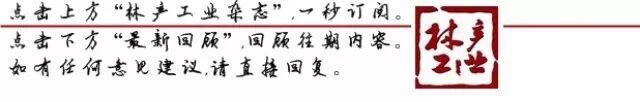 点击上方“林产工业杂志”,一秒订阅。
点击下方“最新回顾”,回顾往期内容。
如有任何意见建议,请直接回复。
林产
工业